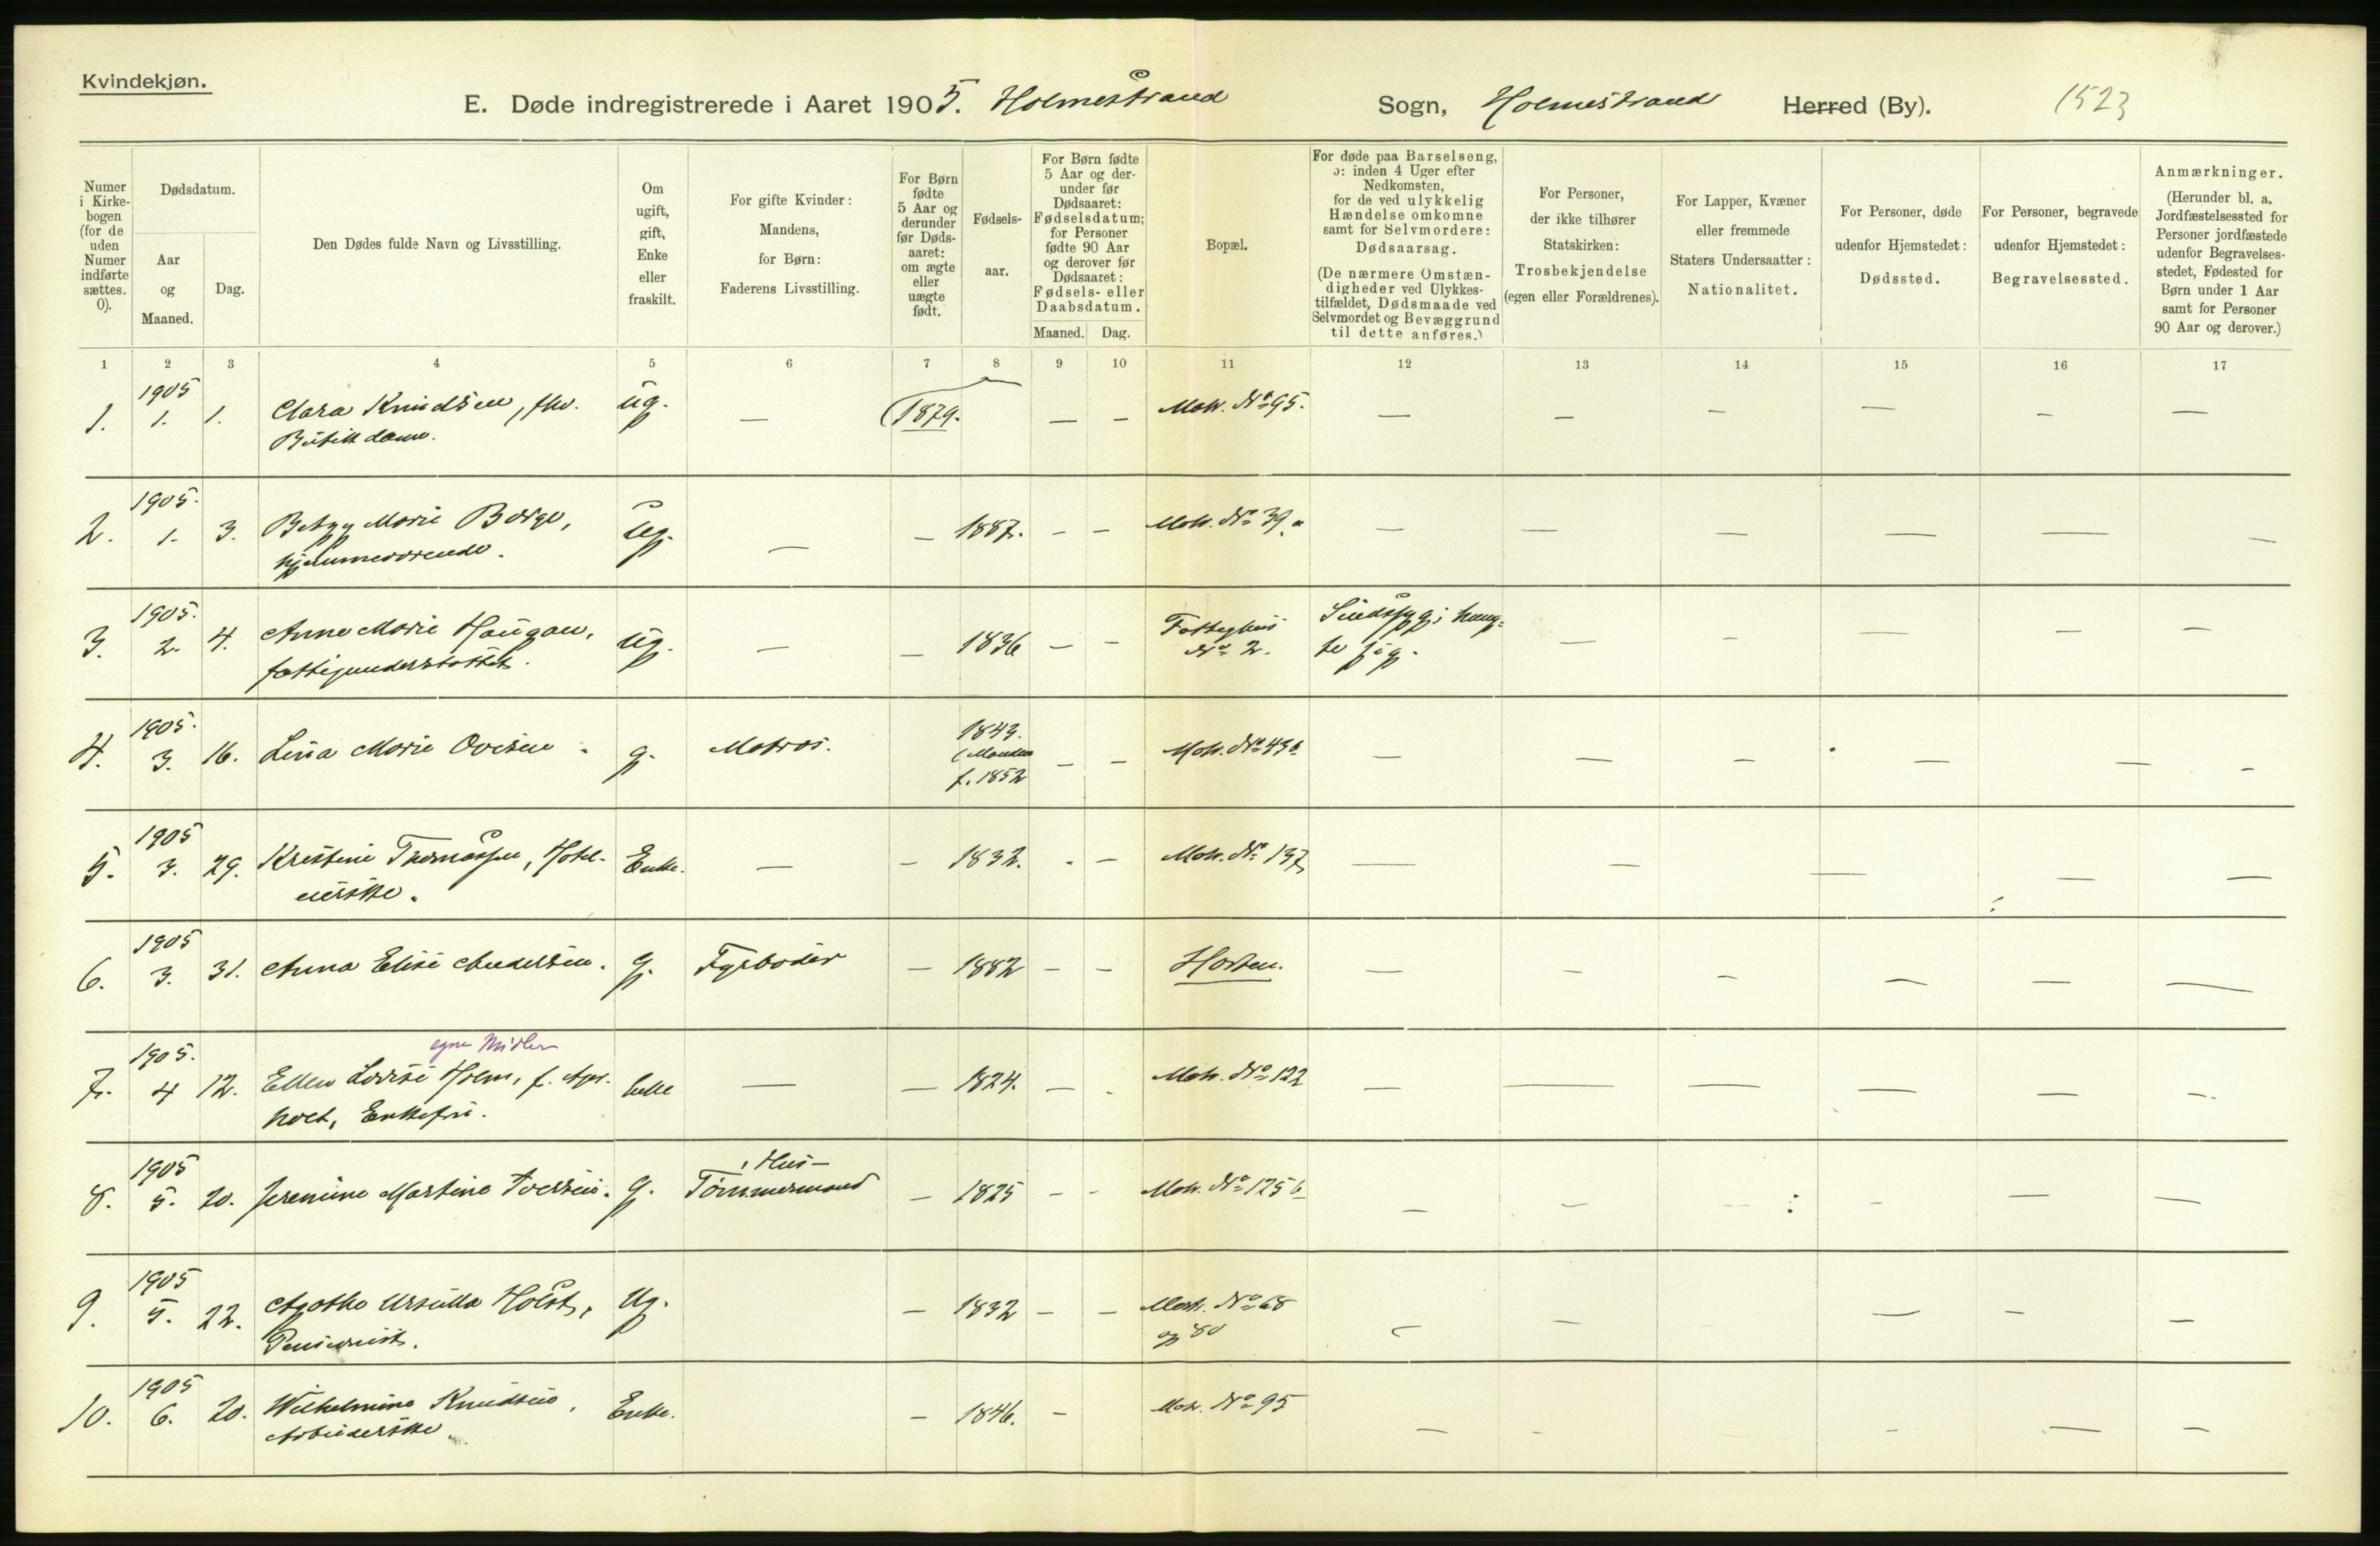 Kvindekjøn.
E. Døde indregistrerede i Aaret 1905. Holmestrand Sogn, Holmestrand Herred (By). 1523
Numer i Kirkebogen (for de uden Numer indførte sættes. 0).
Dødsdatum.
Aar og Maaned.
Dag.
Den Dødes fulde Navn og Livsstilling.
Om ugift, gift, Enke eller fraskilt.
For gifte Kvinder: Mandens, for Børn: Faderens Livsstilling.
For Børn fødte 5 Aar og derunder før Dødsaaret: om ægte eller uægte født.
Fødselsaar.
For Børn fødte 5 Aar og derunder før Dødsaaret: Fødselsdatum; for Personer fødte 90 Aar og derover før Dødsaaret: Fødsels- eller Daabsdatum.
Maaned. Dag.
Bopæl.
For døde paa Barselseng, ɔ: inden 4 Uger efter Nedkomsten, for de ved ulykkelig Hændelse omkomne samt for Selvmordere: Dødsaarsag.
(De nærmere Omstændigheder ved Ulykkestilfældet, Dødsmaade ved Selvmordet og Bevæggrund til dette anføres.)
For Personer, der ikke tilhører Statskirken: Trosbekjendelse (egen eller Forældrenes).
For Lapper, Kvæner eller fremmede Staters Undersaatter: Nationalitet.
For Personer, døde udenfor Hjemstedet: Dødssted.
For Personer, begravede udenfor Hjemstedet: Begravelsessted.
Anmærkninger.
(Herunder bl. a. Jordfæstelsessted for Personer jordfæstede udenfor Begravelsesstedet, Fødested for Børn under 1 Aar samt for Personer 90 Aar og derover.)
1 2 3 4 5 6 7 8 9 10 11 12 13 14 15 16 17
1905
1. 1. 1. Clara Knudsen, fhv. ug. — (1879. — — Matr. No 95. — — — — — —
Butikdame.
1905.
2. 1. 3. Betzy Marie Borge, ug. — — 1887. — — Matr. No 39a — — — — — —
hjemmeværende.
1905.
3. 2. 4. Anne Marie Haugan, ug. — — 1836 — — Fattighus No 2. Sindssyg; hængte sig. — — — — —
fattigunderstøttet.
1905.
4. 3. 16. Lina Marie Ovesen. g. Matros. 1843. (Manden f. 1852 — — Matr. No 43b — — — — — —
1905
5. 3. 29. Kristine Thomassen, Hotel- Enke. — — 1832. - — Matr. No 137 — — — — — —
eierske.
1905
6. 3. 31. Anna Elise Andersen. g. Fyrbøder — 1882 — — Horten. — — — — — —
egne Midler
1905.
7. 4 12. Ellen Lovise Holm, f. Enke — — 1824. — - Matr. No 122 — — — — — —
Enkefru.
1905
8. 5. 20. Jeremine Martine Iversen. g. Hus-Tømmermand — 1825 — - Matr. No 125b — — — — — —
1905
9. 5. 22. Agathe Ursulla Holst, Ug. — 1832 — — Matr. No 68 og 80 — — — — —
Pensionist.
1905
10. 6. 20. Wilhelmine Knudsen, Enke. — 1846. — Matr. No 95 — - - — —
Arbeiderske